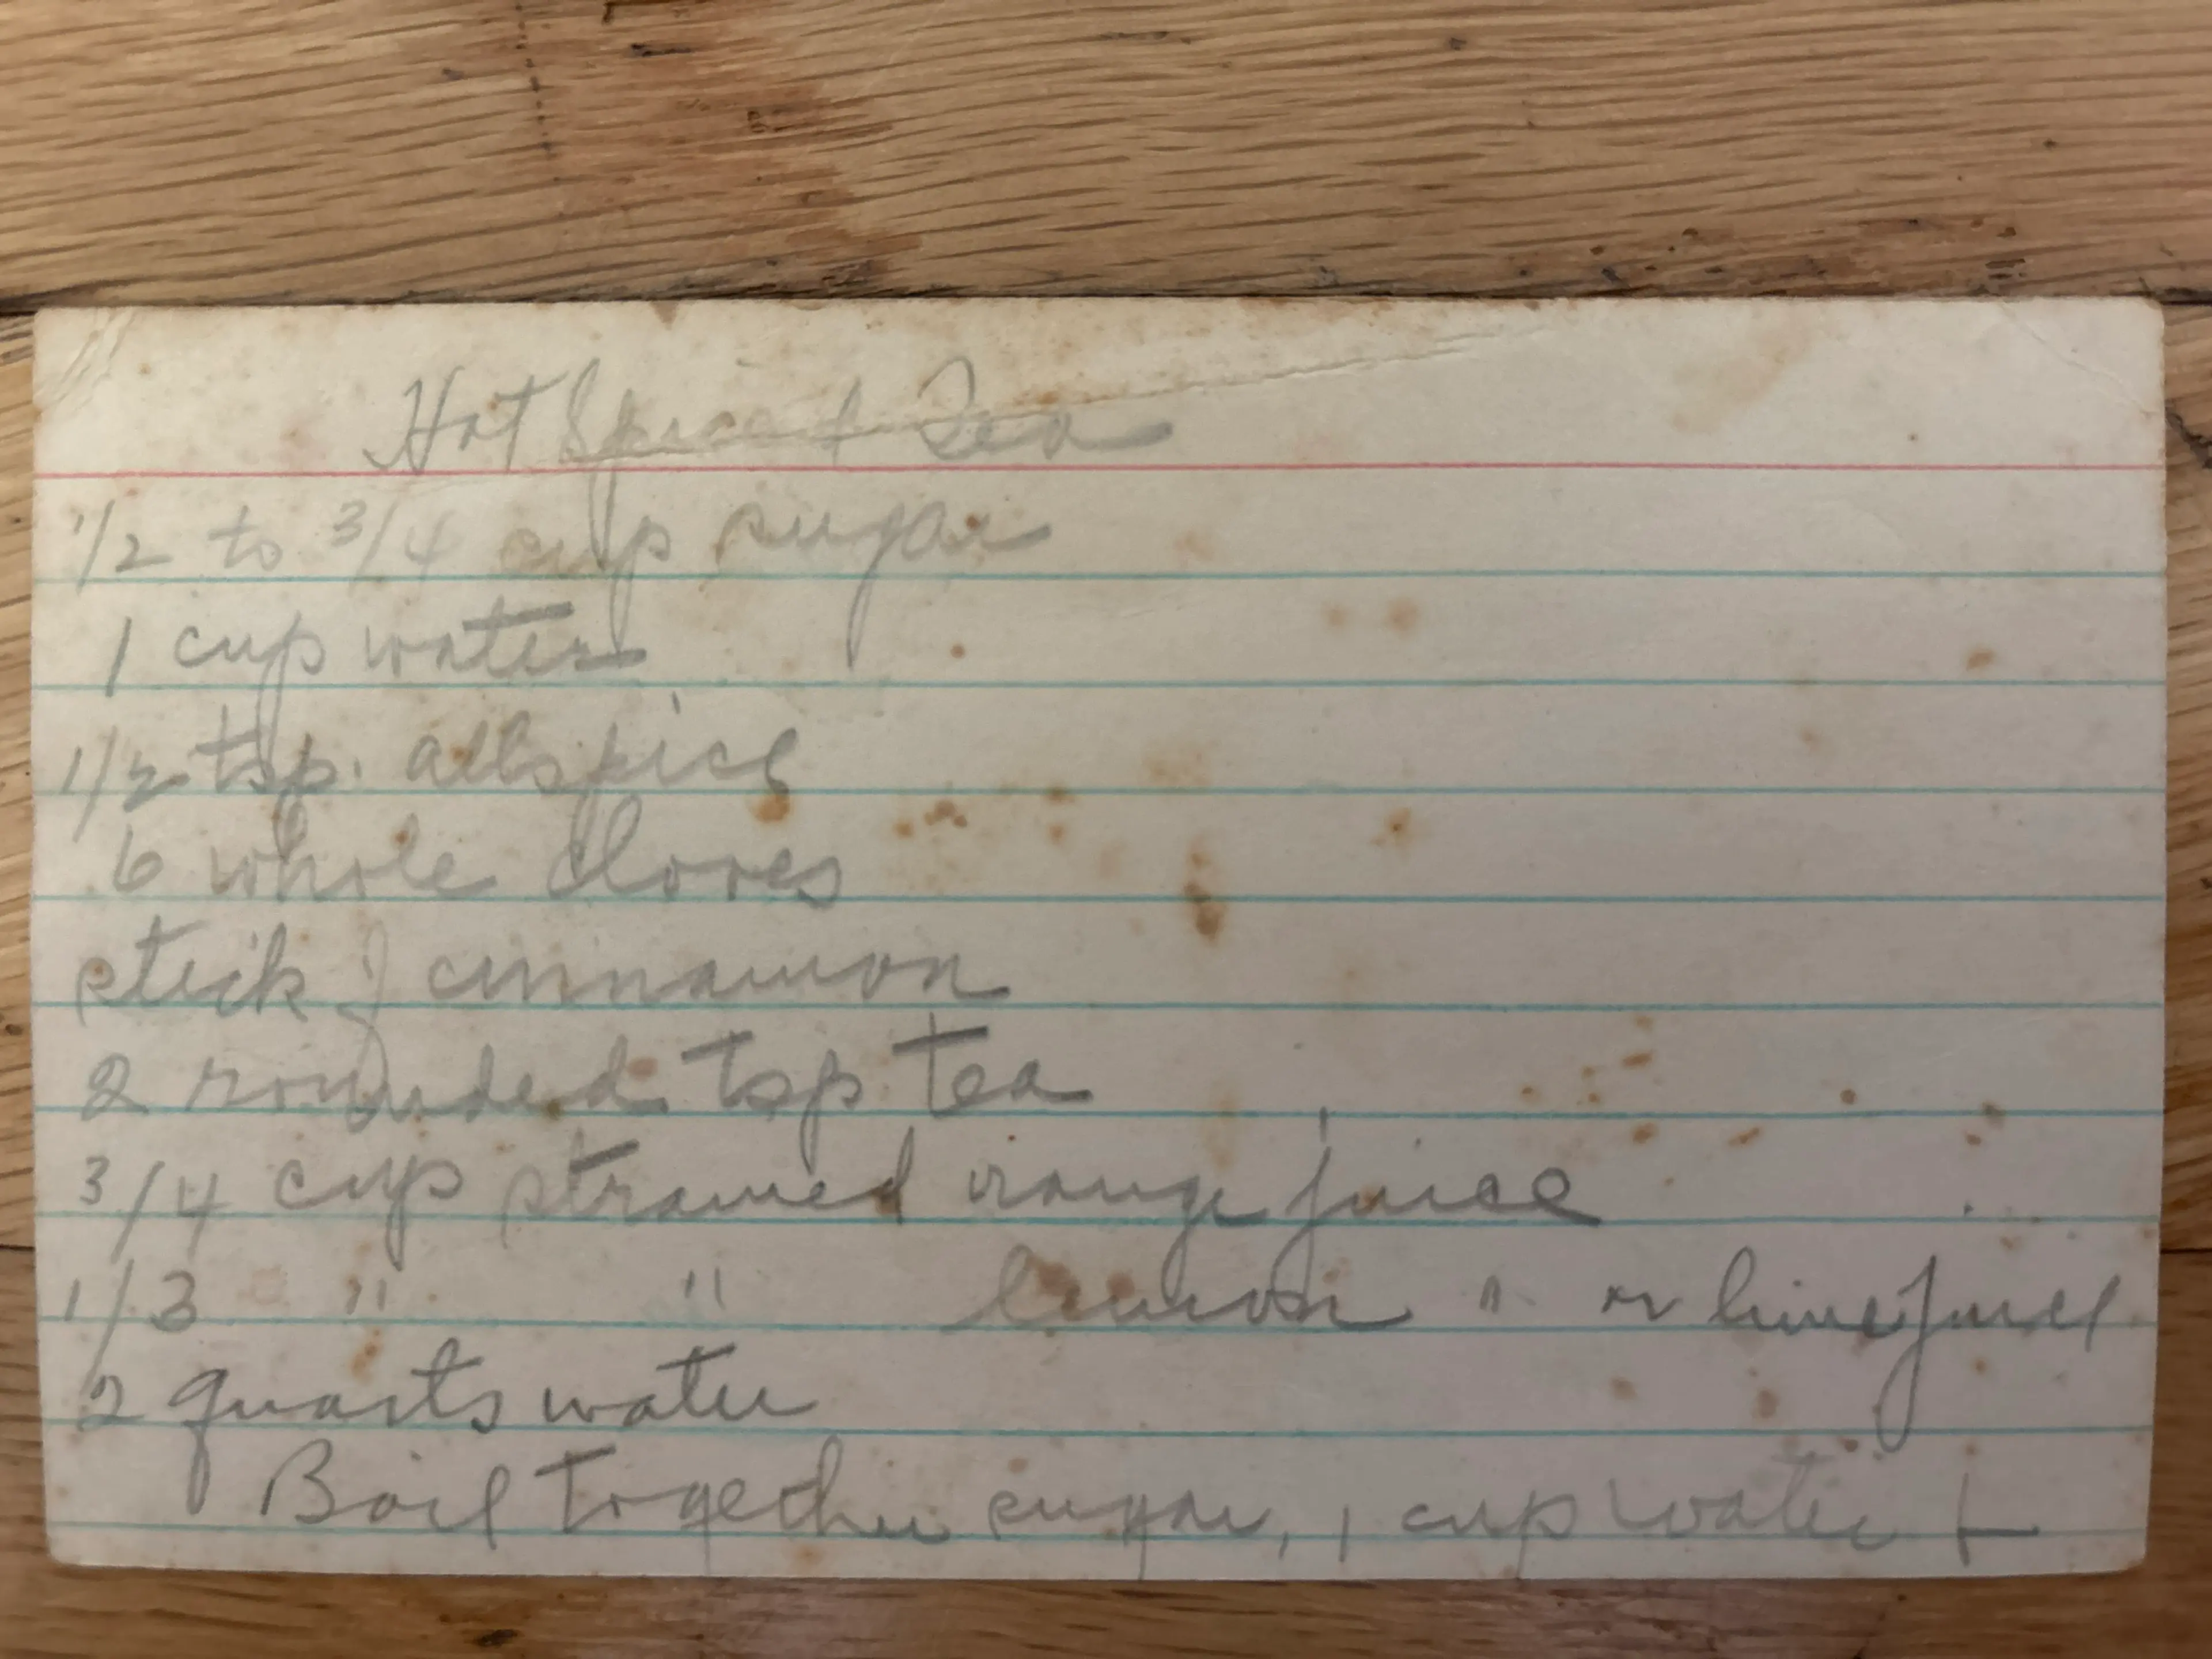 Hot Spiced Tea
1/2 to 3/4 cup sugar
1 cup water
1/2 tsp. allspice
6 whole cloves
stick of cinnamon
2 rounded tsp tea
3/4 cup strained orange juice
1/3 " " lemon " or lime juice
2 quarts water
Boil together sugar, 1 cup water +